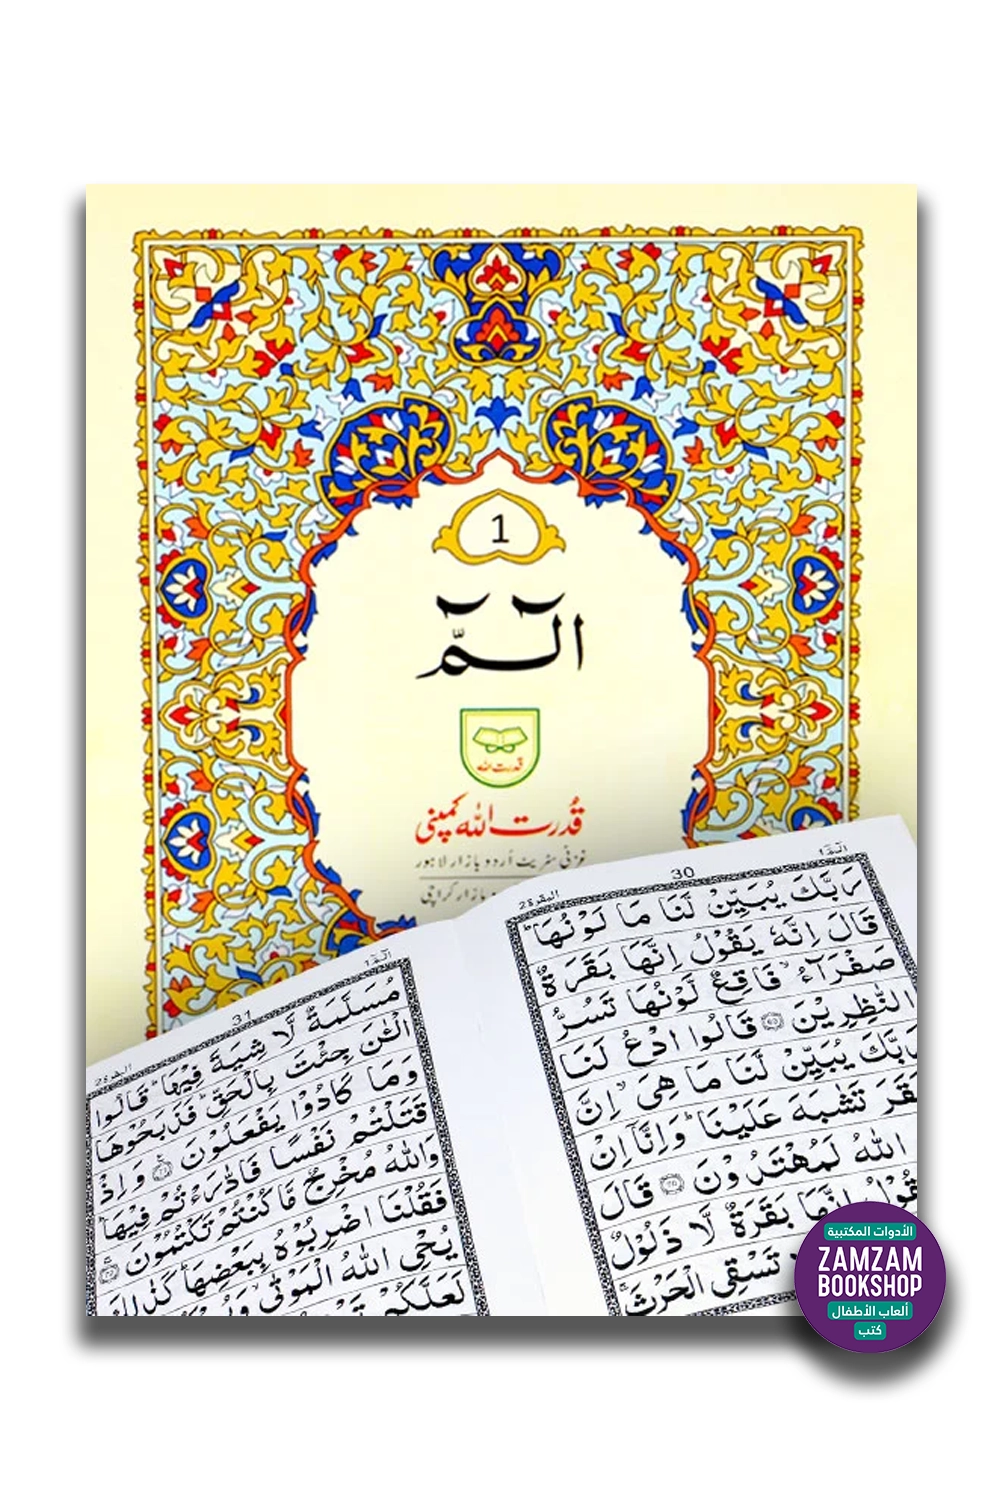 1
الٓمّٓ
قدرت اللہ
قُدرت اللہ کمپنی
غزنی سٹریٹ اُردو بازار لاہور
بازار کراچی
الٓمّٓ ١
30
البقرة 2
رَبَّكَ يُبَيِّنْ لَّنَا مَا لَوْنُهَا ؕ
قَالَ اِنَّهٗ يَقُوْلُ اِنَّهَا بَقَرَةٌ
صَفْرَآءُ ۙ فَاقِعٌ لَّوْنُهَا تَسُرُّ
النّٰظِرِيْنَ قَالُوا ادْعُ لَنَا
رَبَّكَ يُبَيِّنْ لَّنَا مَا هِىَ ۙ اِنَّ
الْبَقَرَ تَشٰبَهَ عَلَيْنَا ؕ وَاِنَّاۤ اِنْ
اللّٰهُ لَمُهْتَدُوْنَ قَالَ
يَقُوْلُ اِنَّهَا بَقَرَةٌ لَّا ذَلُوْلٌ
تَسْقِى الْحَرْثَ ۚ
الٓمّٓ ١
31
البقرة 2
مُسَلَّمَةٌ لَّا شِيَةَ فِيْهَا ؕ قَالُوا
الْـٰٔنَ جِئْتَ بِالْحَقِّ ؕ فَذَبَحُوْهَا
وَمَا كَادُوْا يَفْعَلُوْنَ وَاِذْ
قَتَلْتُمْ نَفْسًا فَادّٰرَءْتُمْ فِيْهَا ؕ
وَاللّٰهُ مُخْرِجٌ مَّا كُنْتُمْ تَكْتُمُوْنَ
فَقُلْنَا اضْرِبُوْهُ بِبَعْضِهَا ؕ كَذٰلِكَ
يُحْىِ اللّٰهُ الْمَوْتٰى ۙ
لَعَلَّكُمْ
الأدوات المكتبية
ZAMZAM
BOOKSHOP
ألعاب الأطفال
كتب